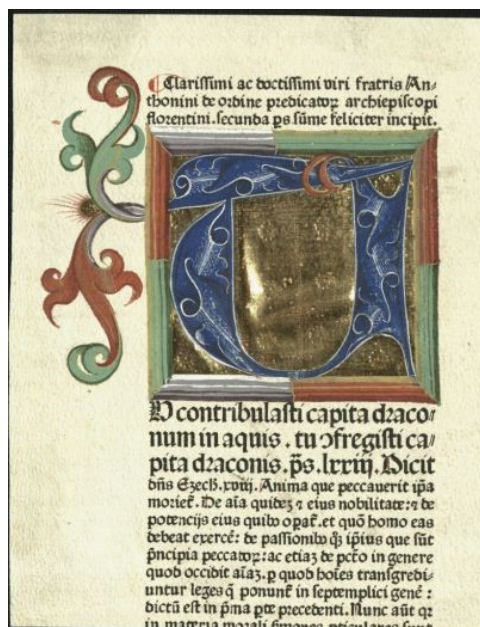 Clarissimi ac doctissimi viri fratris An-
thonini de ordine predicatoꝝ archiepiscopi
florentini. secunda ps sūme feliciter incipit.
TU
V contribulasti capita draco-
num in aquis. tu ↄfregisti ca-
pita draconis. p̄s. lxxiij. Dicit
dn̄s Ezech. xviij. Anima que peccauerit ip̄a
moriet᷑. De aīa quidez ⁊ eius nobilitate: ⁊ de
potencijs eius quibꝰ opat᷑. et quō homo eas
debeat exercē: de passionibꝰ q̄ȝ ip̄ius que sūt
p̄ncipia peccatoꝝ: ac etiaz de pctō in genere
quod occidit aīaz. ꝑ quod hoīes transgredi-
untur leges q̄ ponunt᷑ in septemplici genē:
dictū est in p̄ma ꝑte precedenti. Nunc aūt qꝛ
in materia morali sermones ꝑticulares sunt